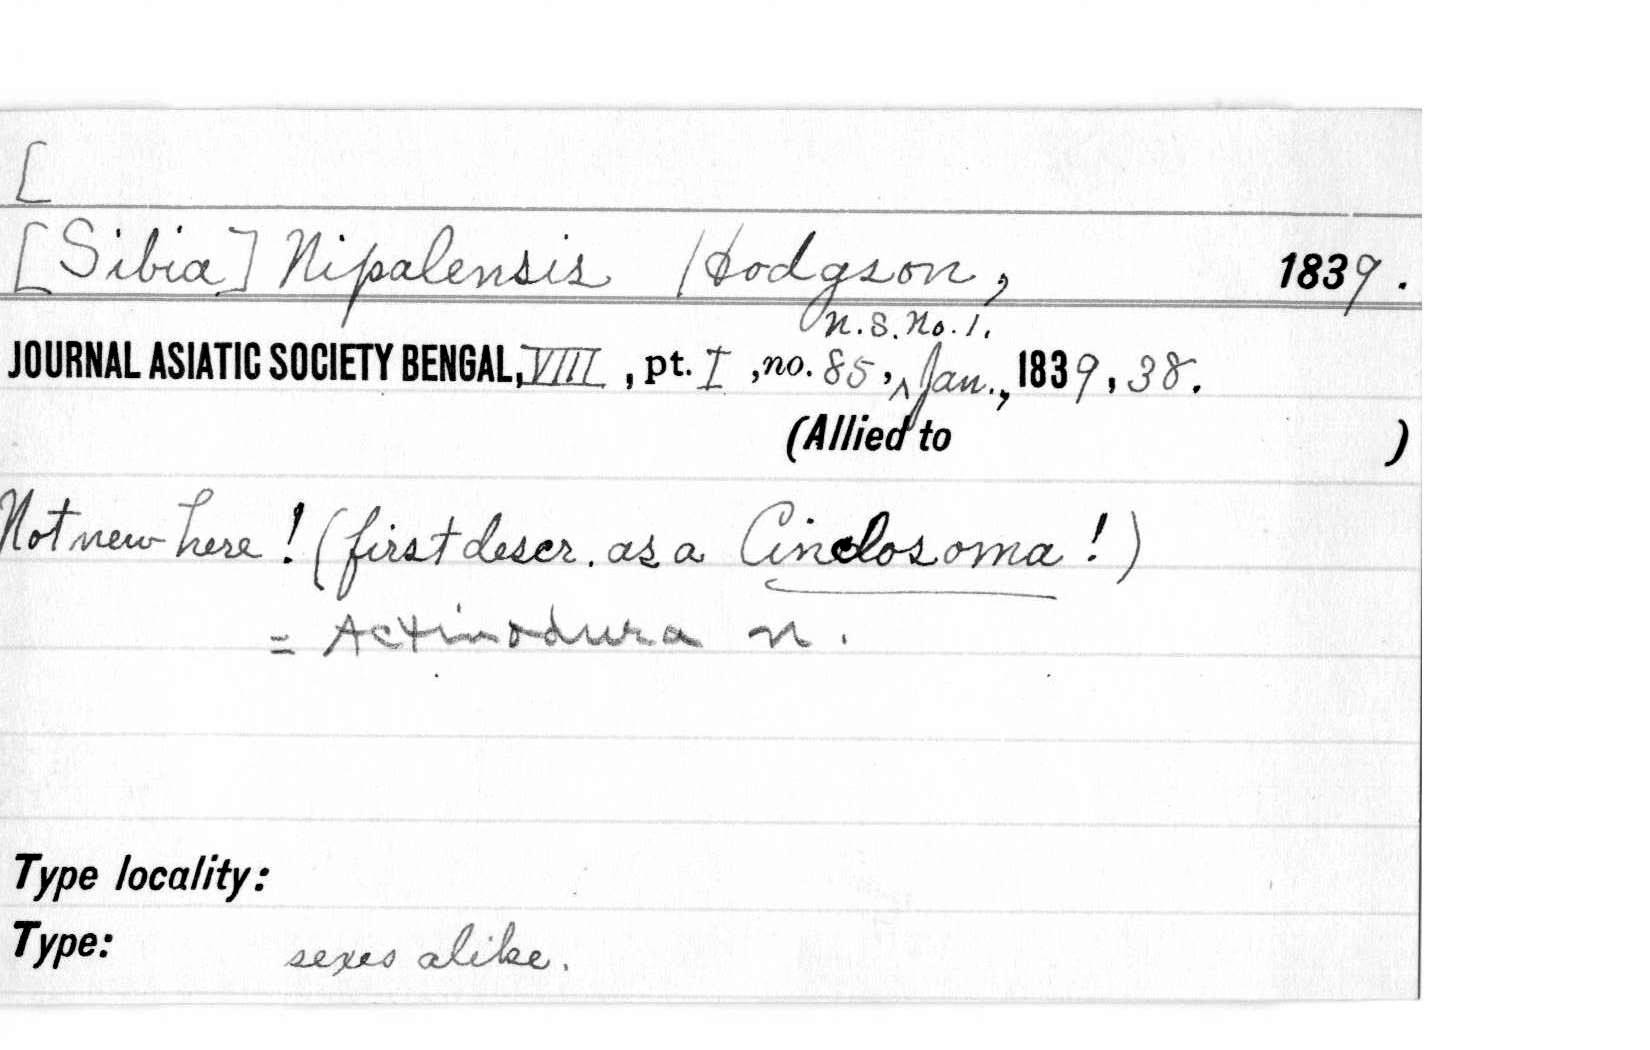 [
[Sibia] Nipalensis Hodgson, 1839.
n.s. no. 1.
JOURNAL ASIATIC SOCIETY BENGAL, VIII, pt. I, no. 85, ^ Jan., 1839, 38.
(Allied to )
Not new here! (first descr. as a Cinclosoma!)
= Actinodura n.
Type locality:
Type: sexes alike.